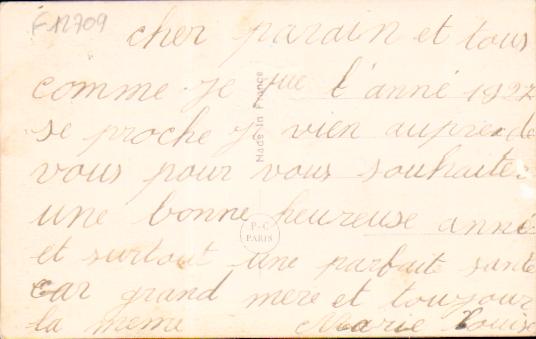 E12709
cher parain et tous
comme je vue l'anné 1927
se proche j vien aupre de
vous pour vous souhaiter
une bonne heureuse anné
et surtout une parfaite sante
car grand mere et toujour
la meme Marie Louise
Made in France
P-C
PARIS